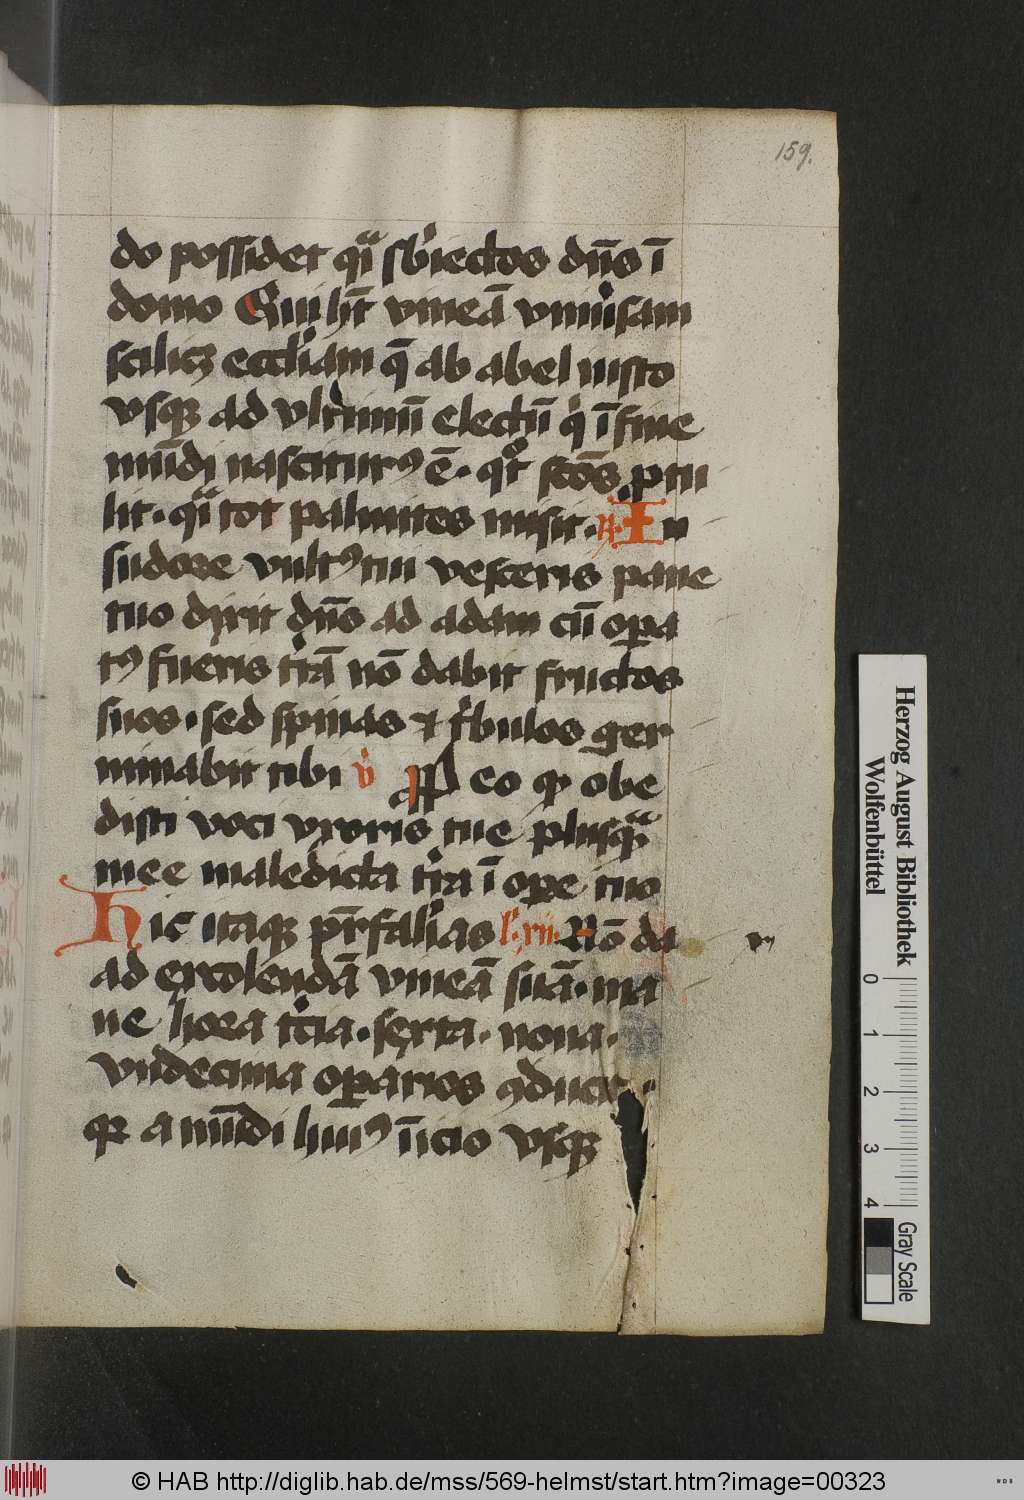 159.
do possidet qͥa sbͥiectos dn̄s ī
domo Qui hꝫ̄t vineā vniuͥsam
scilicꝫ eccl̓iam q̄ ab abel iusto
vsqꝫ ad vltimū electū qͥ ī fine
mūdi nascitur⁹ ē · qͦt scōs ptu
lit · qͣi tot palmites misit · R̷. In
sudore vult⁹ tui vesceris pane
tuo dixit dn̄s ad adam cū oꝑa
t⁹ fueris tr̓ā nō dabit fructos
suos · sed spinas ⁊ tͥbulos ger
minabit tibi v̓ ꝓp̄ eo ꝙ obe
disti voci vxoris tue plusqͣꝫ
mee maledicta tr̓a ī oꝑe tuo
Hic itaqꝫ pr̄faĺias l̓. xii. Nō da
ad excolendā vineā suā · ma
ne hora tc̓ia · sexta · nona ·
vndecima oꝑarios ꝯducit ·
qꝛ a mūdi hui⁹ īicio vsqꝫ
Herzog August Bibliothek
Wolfenbüttel
0 1 2 3 4
Gray Scale
© HAB http://diglib.hab.de/mss/569-helmst/start.htm?image=00323